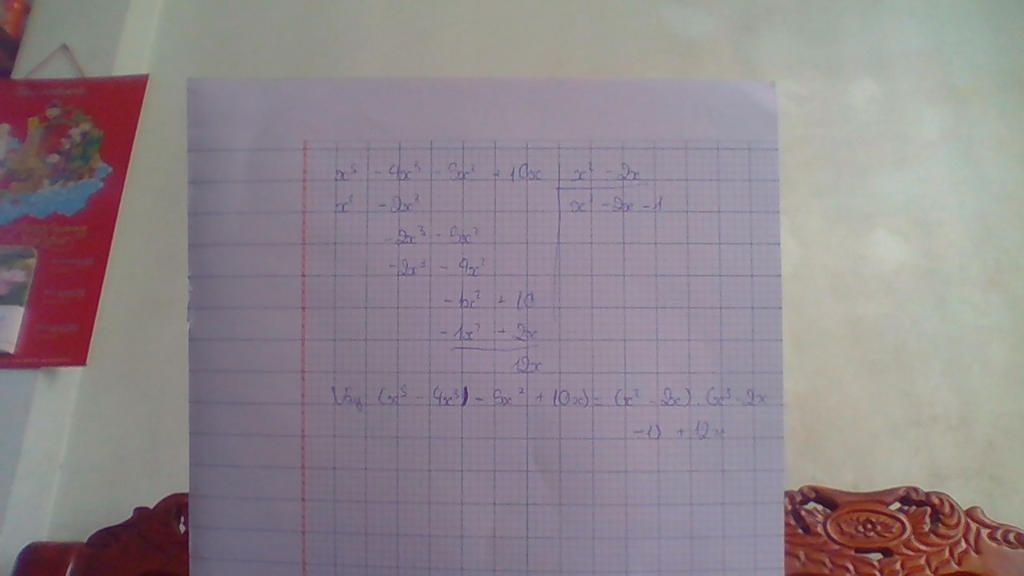 x⁵ - 4x³ - 5x² + 10x | x² - 2x
x² - 2x² | x³ - 2x - 1
- 2x³ - 5x²
- 2x³ - 4x²
- 1x² + 10
- 1x² + 2x
12x
Vậy (x⁵ - 4x³) - 5x² + 10x) = (x² - 2x) . (x³ - 2x
- 1) + 12x